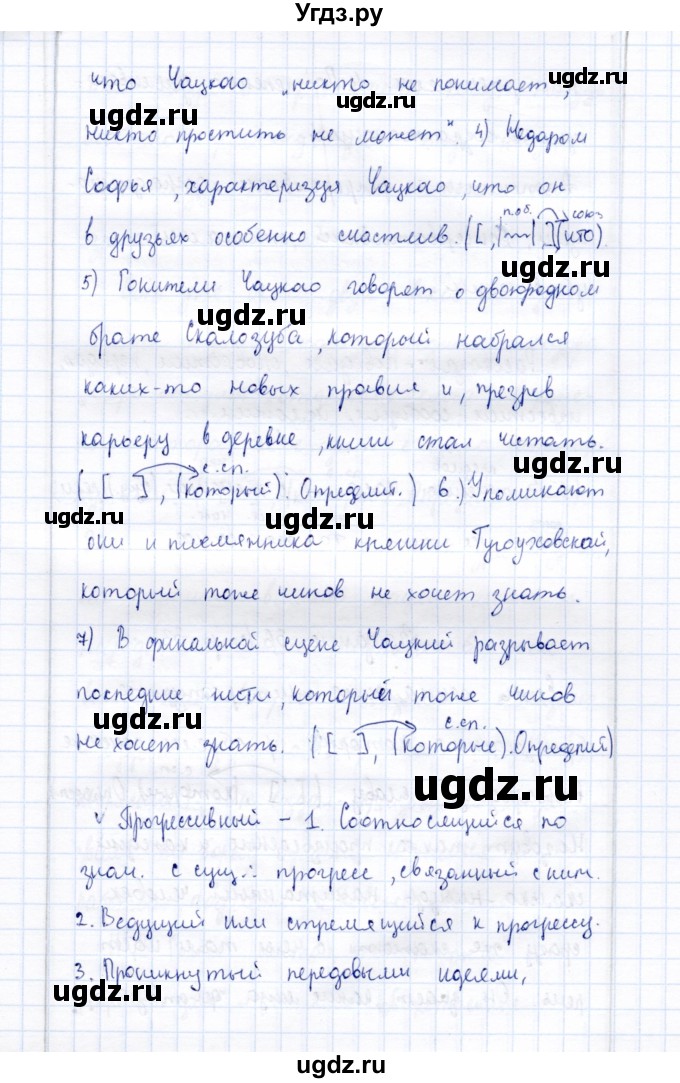 Угдз.ру
что Чацкого „никто не понимает,
никто простить не может“. 4) Недаром
Софья, характеризуя Чацкого, что он
п.об. союз
в друзьях особенно счастлив. ([, |~~|, ], (что)
5) Гонители Чацкого говорят о двоюродном
брате Скалозуба, который набрался
каких-то новых правил и, презрев
карьеру в деревне, книги стал читать.
с.сп.
( [ ], (который). Определит.) 6.) Упоминают
они и племянника княгини Тугоуховской,
который тоже чинов не хочет знать.
7) В финальной сцене Чацкий разрывает
последние нити, который тоже чинов
с.сп.
не хочет знать. ( [ ], (которые). Определит)
v Прогрессивный – 1. Соотносящийся по
знач. с сущ.: прогресс, связанный с ним.
2. Ведущий или стремящийся к прогрессу.
3. Проникнутый передовыми идеями,
ugdz.ru
ugdz.ru
ugdz.ru
ugdz.ru
ugdz.ru
ugdz.ru
ugdz.ru
ugdz.ru
ugdz.ru
ugdz.ru
ugdz.ru
ugdz.ru
ugdz.ru
ugdz.ru